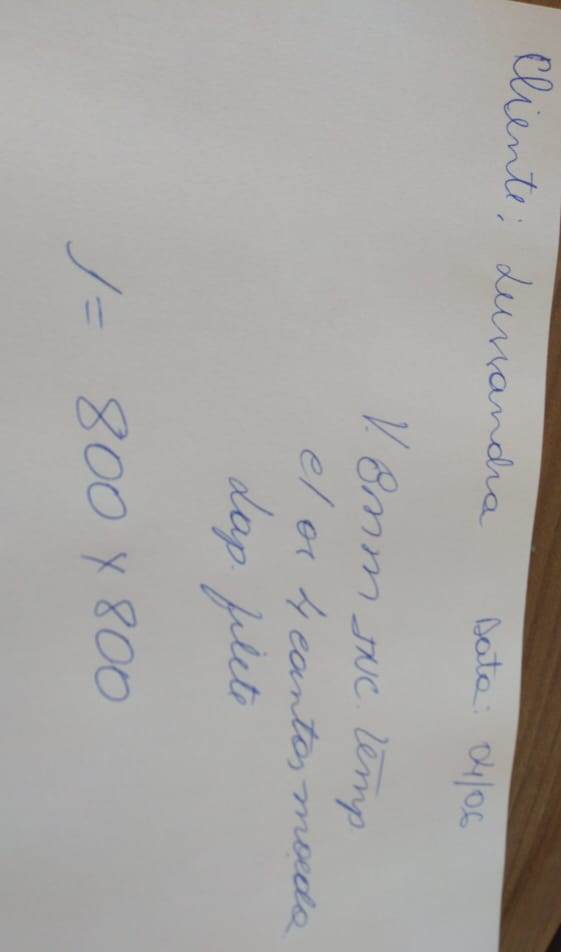 Cliente: Lussandra Data: 04/06
V. 8mm INC. Temp.
c/ os 4 cantos moeda
Lap. filete
1 = 800 x 800